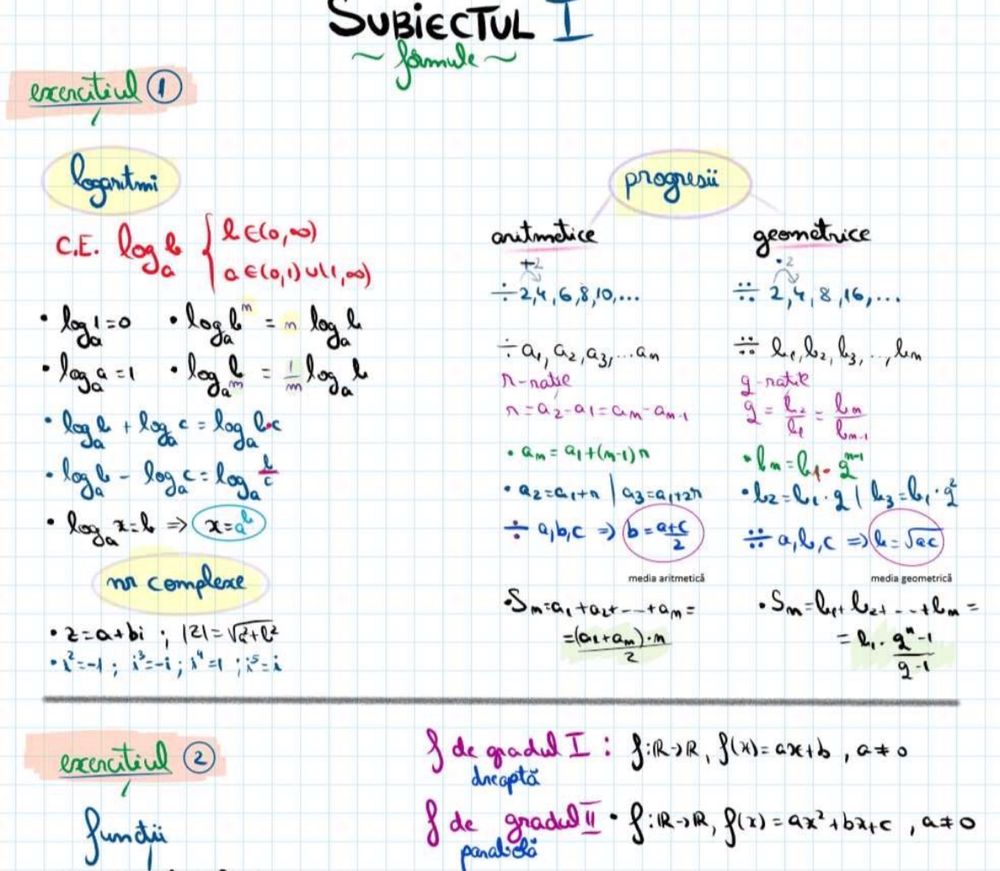 SUBIECTUL I
~ formule ~
exercitiul 1
logaritmi
C.E. log_a b { b ∈ (0,∞)
a ∈ (0,1) ∪ (1,∞)
• log_a 1 = 0 • log_a b^n = n log_a b
• log_a a = 1 • log_{a^m} b = 1/m log_a b
• log_a b + log_a c = log_a b·c
• log_a b - log_a c = log_a b/c
• log_a x = b => x = a^b
nr complexe
• z = a+bi ; |z| = √a²+b²
• i² = -1 ; i³ = -i ; i⁴ = 1 ; i⁵ = i
progresii
aritmetice
+2
÷ 2,4,6,8,10,...
÷ a₁, a₂, a₃, ... aₙ
r-ratie
r = a₂-a₁ = aₙ-aₙ₋₁
• aₙ = a₁+(n-1)r
• a₂ = a₁+r | a₃ = a₁+2r
÷ a,b,c => b = a+c/2
media aritmetică
• Sₙ = a₁+a₂+---+aₙ =
= (a₁+aₙ)·n/2
geometrice
·2
÷÷ 2,4,8,16,...
÷÷ b₁,b₂,b₃,...,bₙ
q-ratie
q = b₂/b₁ = bₙ/bₙ₋₁
• bₙ = b₁·q^n-1
• b₂ = b₁·q | b₃ = b₁·q²
÷÷ a,b,c => b = √ac
media geometrică
• Sₙ = b₁+b₂+--+bₙ =
= b₁·qⁿ-1/q-1
exercitiul 2
funcții
f de gradul I : f:R→R, f(x) = ax+b , a≠0
dreaptă
f de gradul II • f:R→R, f(x) = ax²+bx+c , a≠0
parabolă